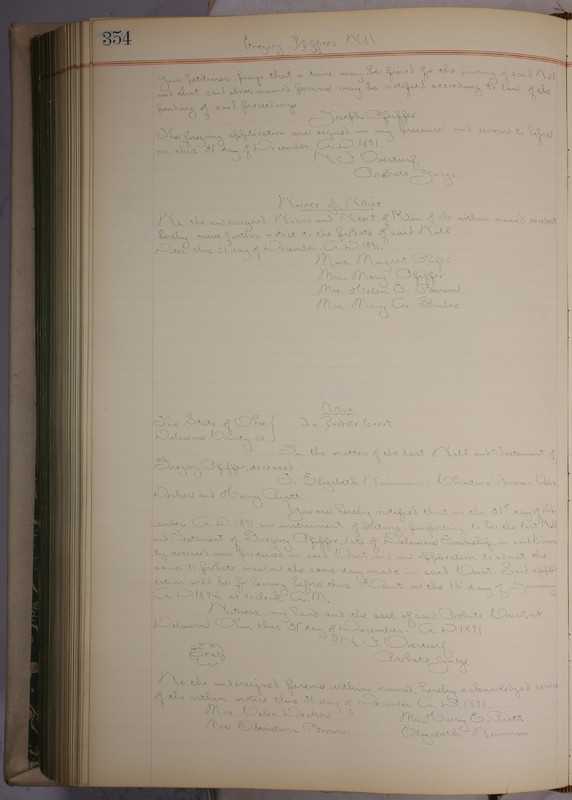 354
Gregory Pfiffers Will
Your Petitioner prays that a time may be fixed for the proving of said Will
and that said above named persons may be notified according to law of the
pending of said proceedings
Joseph Pfiffer
The foregoing application was signed in my presence and sworn to before
me, this 31 day of December A.D. 1891.
Overturf
Probate Judge.
Waiver of Notice
We, the undersigned Widow and Next of Kin of the within named decedent
hereby waive further notice to the probate of said Will
Dated this 31 day of December A.D. 1891.
Mrs. Margret
Mrs. Mary Pfiffer
Mrs.
Mrs. Mary
Notice
The State of Ohio
Delaware County, ss.
In Probate Court
In the matter of the last Will and Testament of
Gregory Pfiffer, deceased.
To Elizabeth
and Harry
You are hereby notified that on the 31st day of De-
cember A.D. 1891, an instrument of writing, purporting to be the last Will
and Testament of Gregory Pfiffer, late of Delaware Township, in said Coun-
ty deceased, was produced in said Court and an application to admit the
same to probate was on the same day made in said Court. Said appli-
cation will be for hearing before this Court on the day of January
A.D. 189 at A.M.
Witness, my hand and the seal of said Probate Court, at
Delaware Ohio this 31st day of December A.D. 1891
Overturf
Seal
Probate Judge
We the undersigned persons within named, hereby acknowledged service
of the within notice this 31 day of December A.D. 1891.
Mrs.
Mrs. Harry
Mrs.
Elizabeth